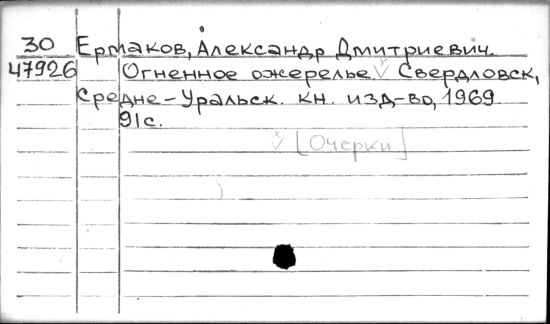 30 Ермаков, Александр Дмитриевич.
47926 Огненное ожерелье. Свердловск,
Средне-Уральск. кн. изд-во, 1969
91с.
[Очерки]